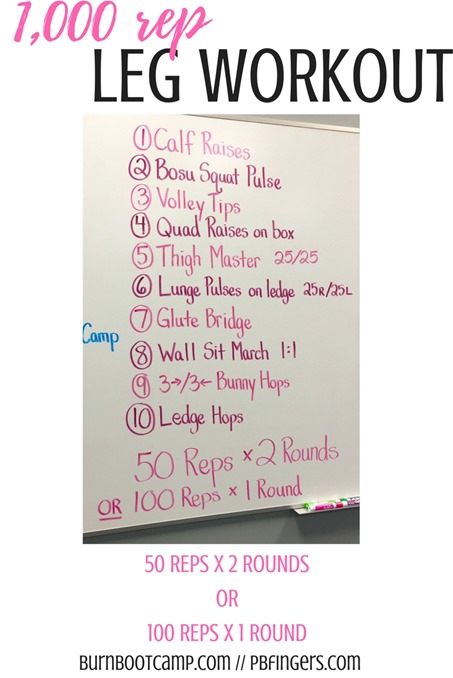 1,000 rep
LEG WORKOUT
① Calf Raises
② Bosu Squat Pulse
③ Volley Tips
④ Quad Raises on box
⑤ Thigh Master 25/25
⑥ Lunge Pulses on ledge 25R/25L
⑦ Glute Bridge
Camp
⑧ Wall Sit March 1:1
⑨ 3→/3← Bunny Hops
⑩ Ledge Hops
50 Reps x 2 Rounds
OR 100 Reps x 1 Round
50 REPS X 2 ROUNDS
OR
100 REPS X 1 ROUND
BURNBOOTCAMP.COM // PBFINGERS.COM